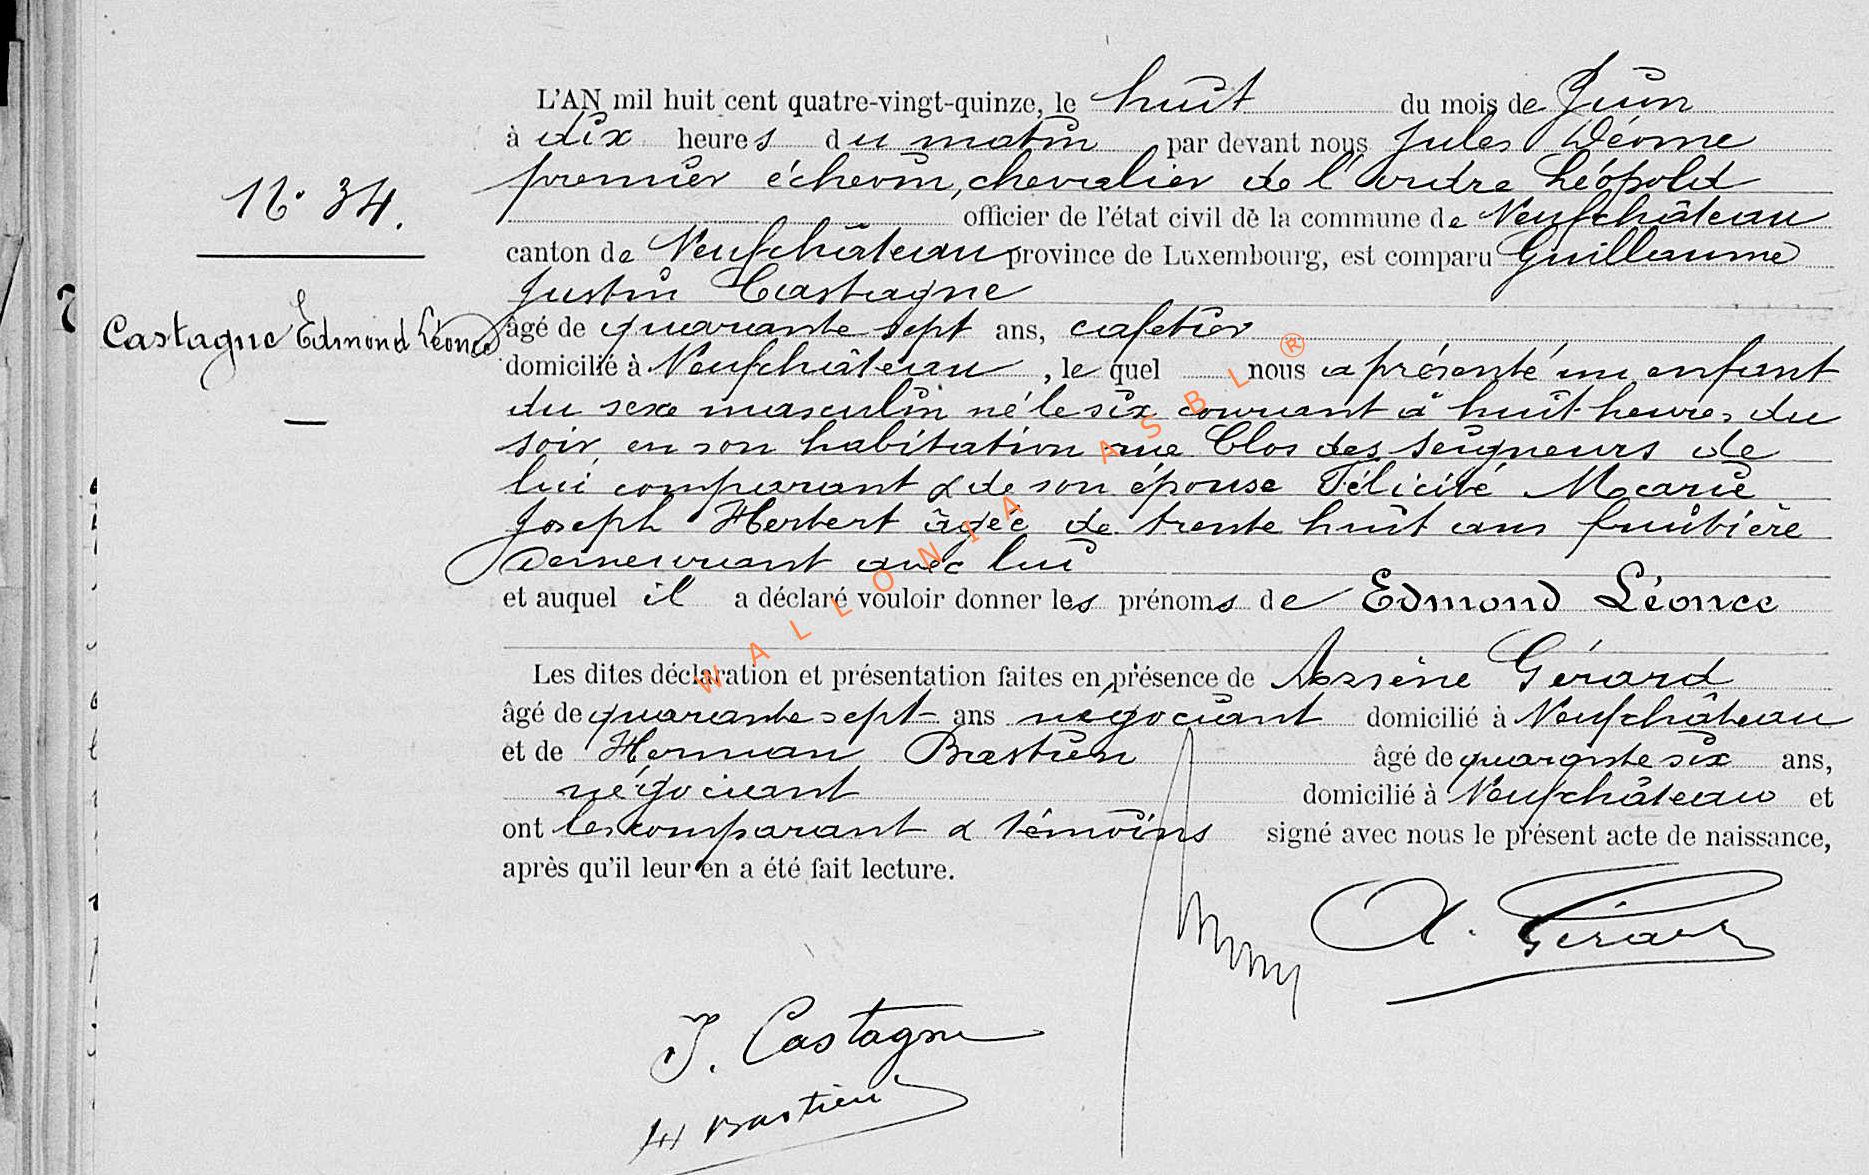 L'AN mil huit cent quatre-vingt-quinze, le huit du mois de Juin
à dix heures du matin par devant nous Jules Déome
premier échevin, chevalier de l'ordre Léopold
N° 34.
officier de l'état civil de la commune de Neufchâteau
canton de Neufchâteau province de Luxembourg, est comparu Guillaume
Justin Castagne
Castagne Edmond Léonce
âgé de quarante sept ans, cafetier
domicilié à Neufchâteau, le quel nous a présenté un enfant
du sexe masculin né le six courant à huit heures du
soir, en son habitation rue Clos des Seigneurs de
lui comparant & de son épouse Félicité Marie
Joseph Herbert âgée de trente huit ans
demeurant avec lui
et auquel il a déclaré vouloir donner les prénoms de Edmond Léonce
Les dites déclaration et présentation faites en présence de Arsène Gérard
âgé de quarante sept ans négociant domicilié à Neufchâteau
et de Herman Bastien âgé de quarante six ans,
négociant domicilié à Neufchâteau et
ont les comparant & témoins signé avec nous le présent acte de naissance,
après qu'il leur en a été fait lecture.
A. Gérard
J. Castagne
H Bastien
WALLONIA ASBL ®